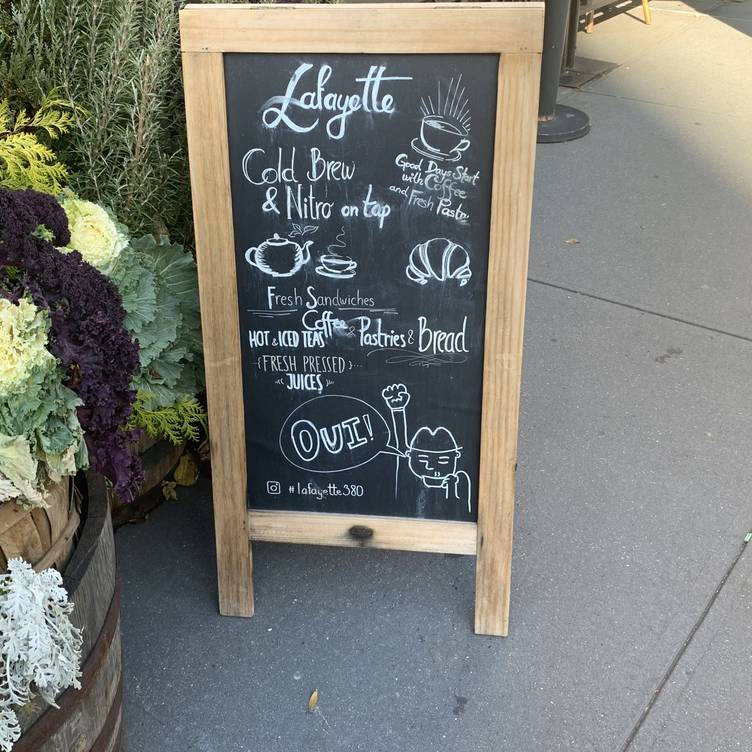 Lafayette
Cold Brew
& Nitro on tap
Good Days Start
with Coffee
and Fresh Pastry
Fresh Sandwiches
Coffee
HOT & ICED TEAS & Pastries & Bread
FRESH PRESSED
JUICES
OUI!
#lafayette380